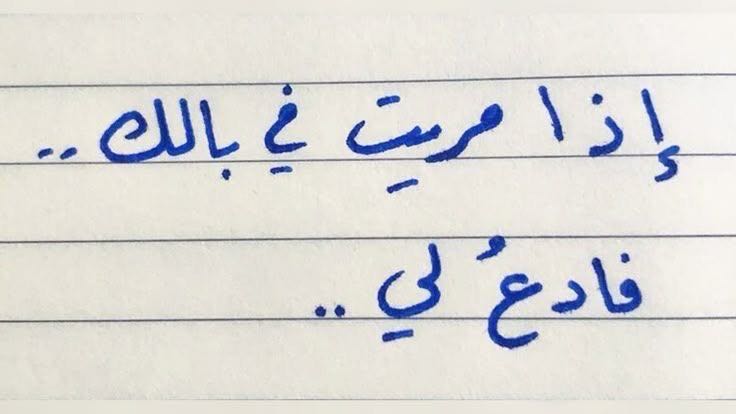 إذا مريت في بالك ..
فادعُ لي ..